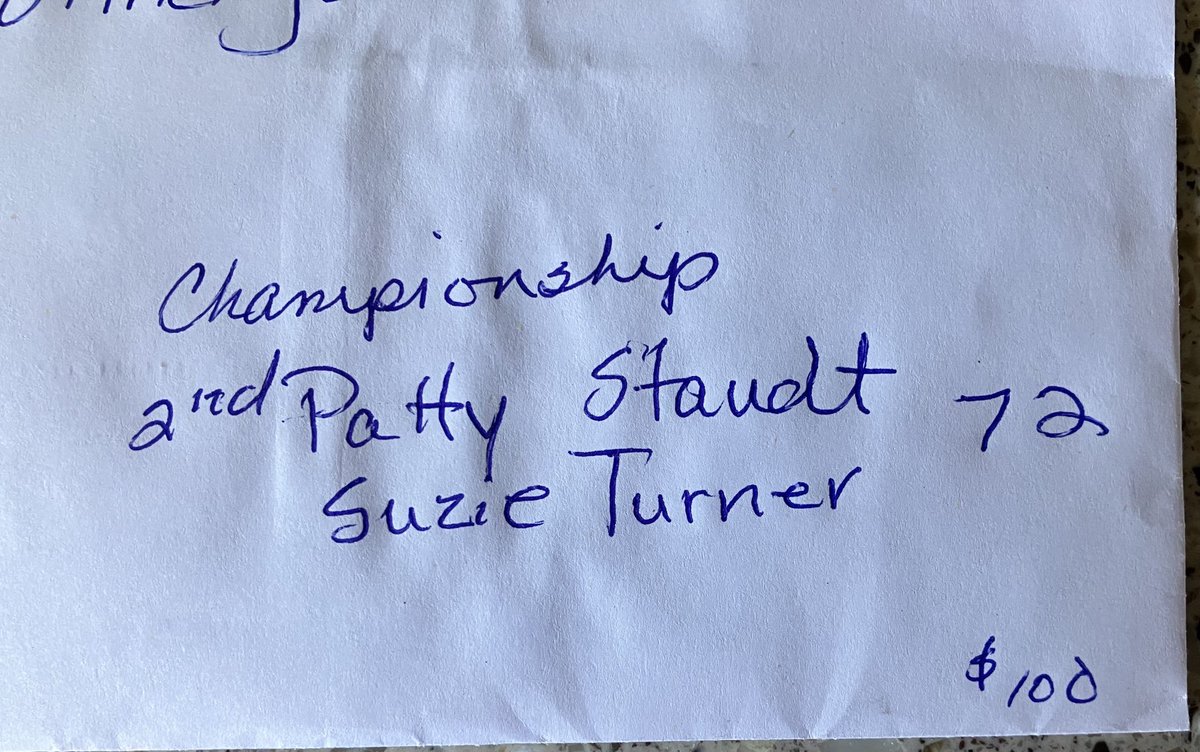 Championship
2nd Patty Staudt 72
Suzie Turner
$100